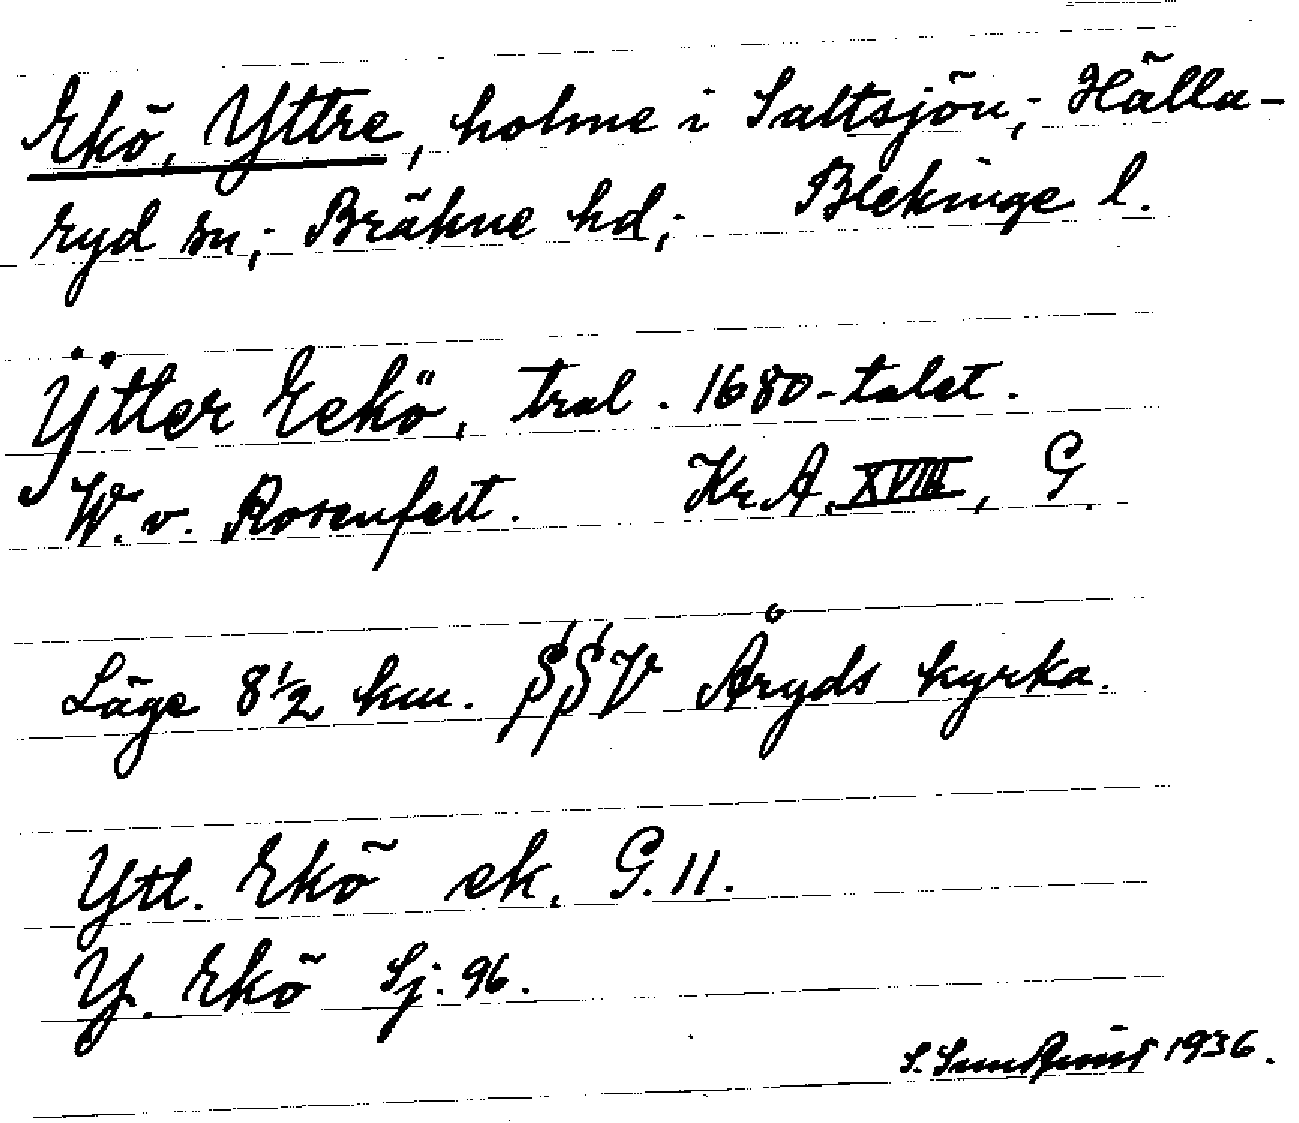 Ekö, Yttre, holme i Saltsjön; Hälla-
ryd sn; Bräkne hd; Blekinge l.
Ÿtter Eekö, tral. 1680-talet.
W. v. Rosenfelt. Kr. A. XVIII, G
Läge 8½ km. SSV Åryds kyrka.
Ytt. Ekö ek. G. 11.
Y. Ekö Sj: 96.
S. Sundqvist 1936.